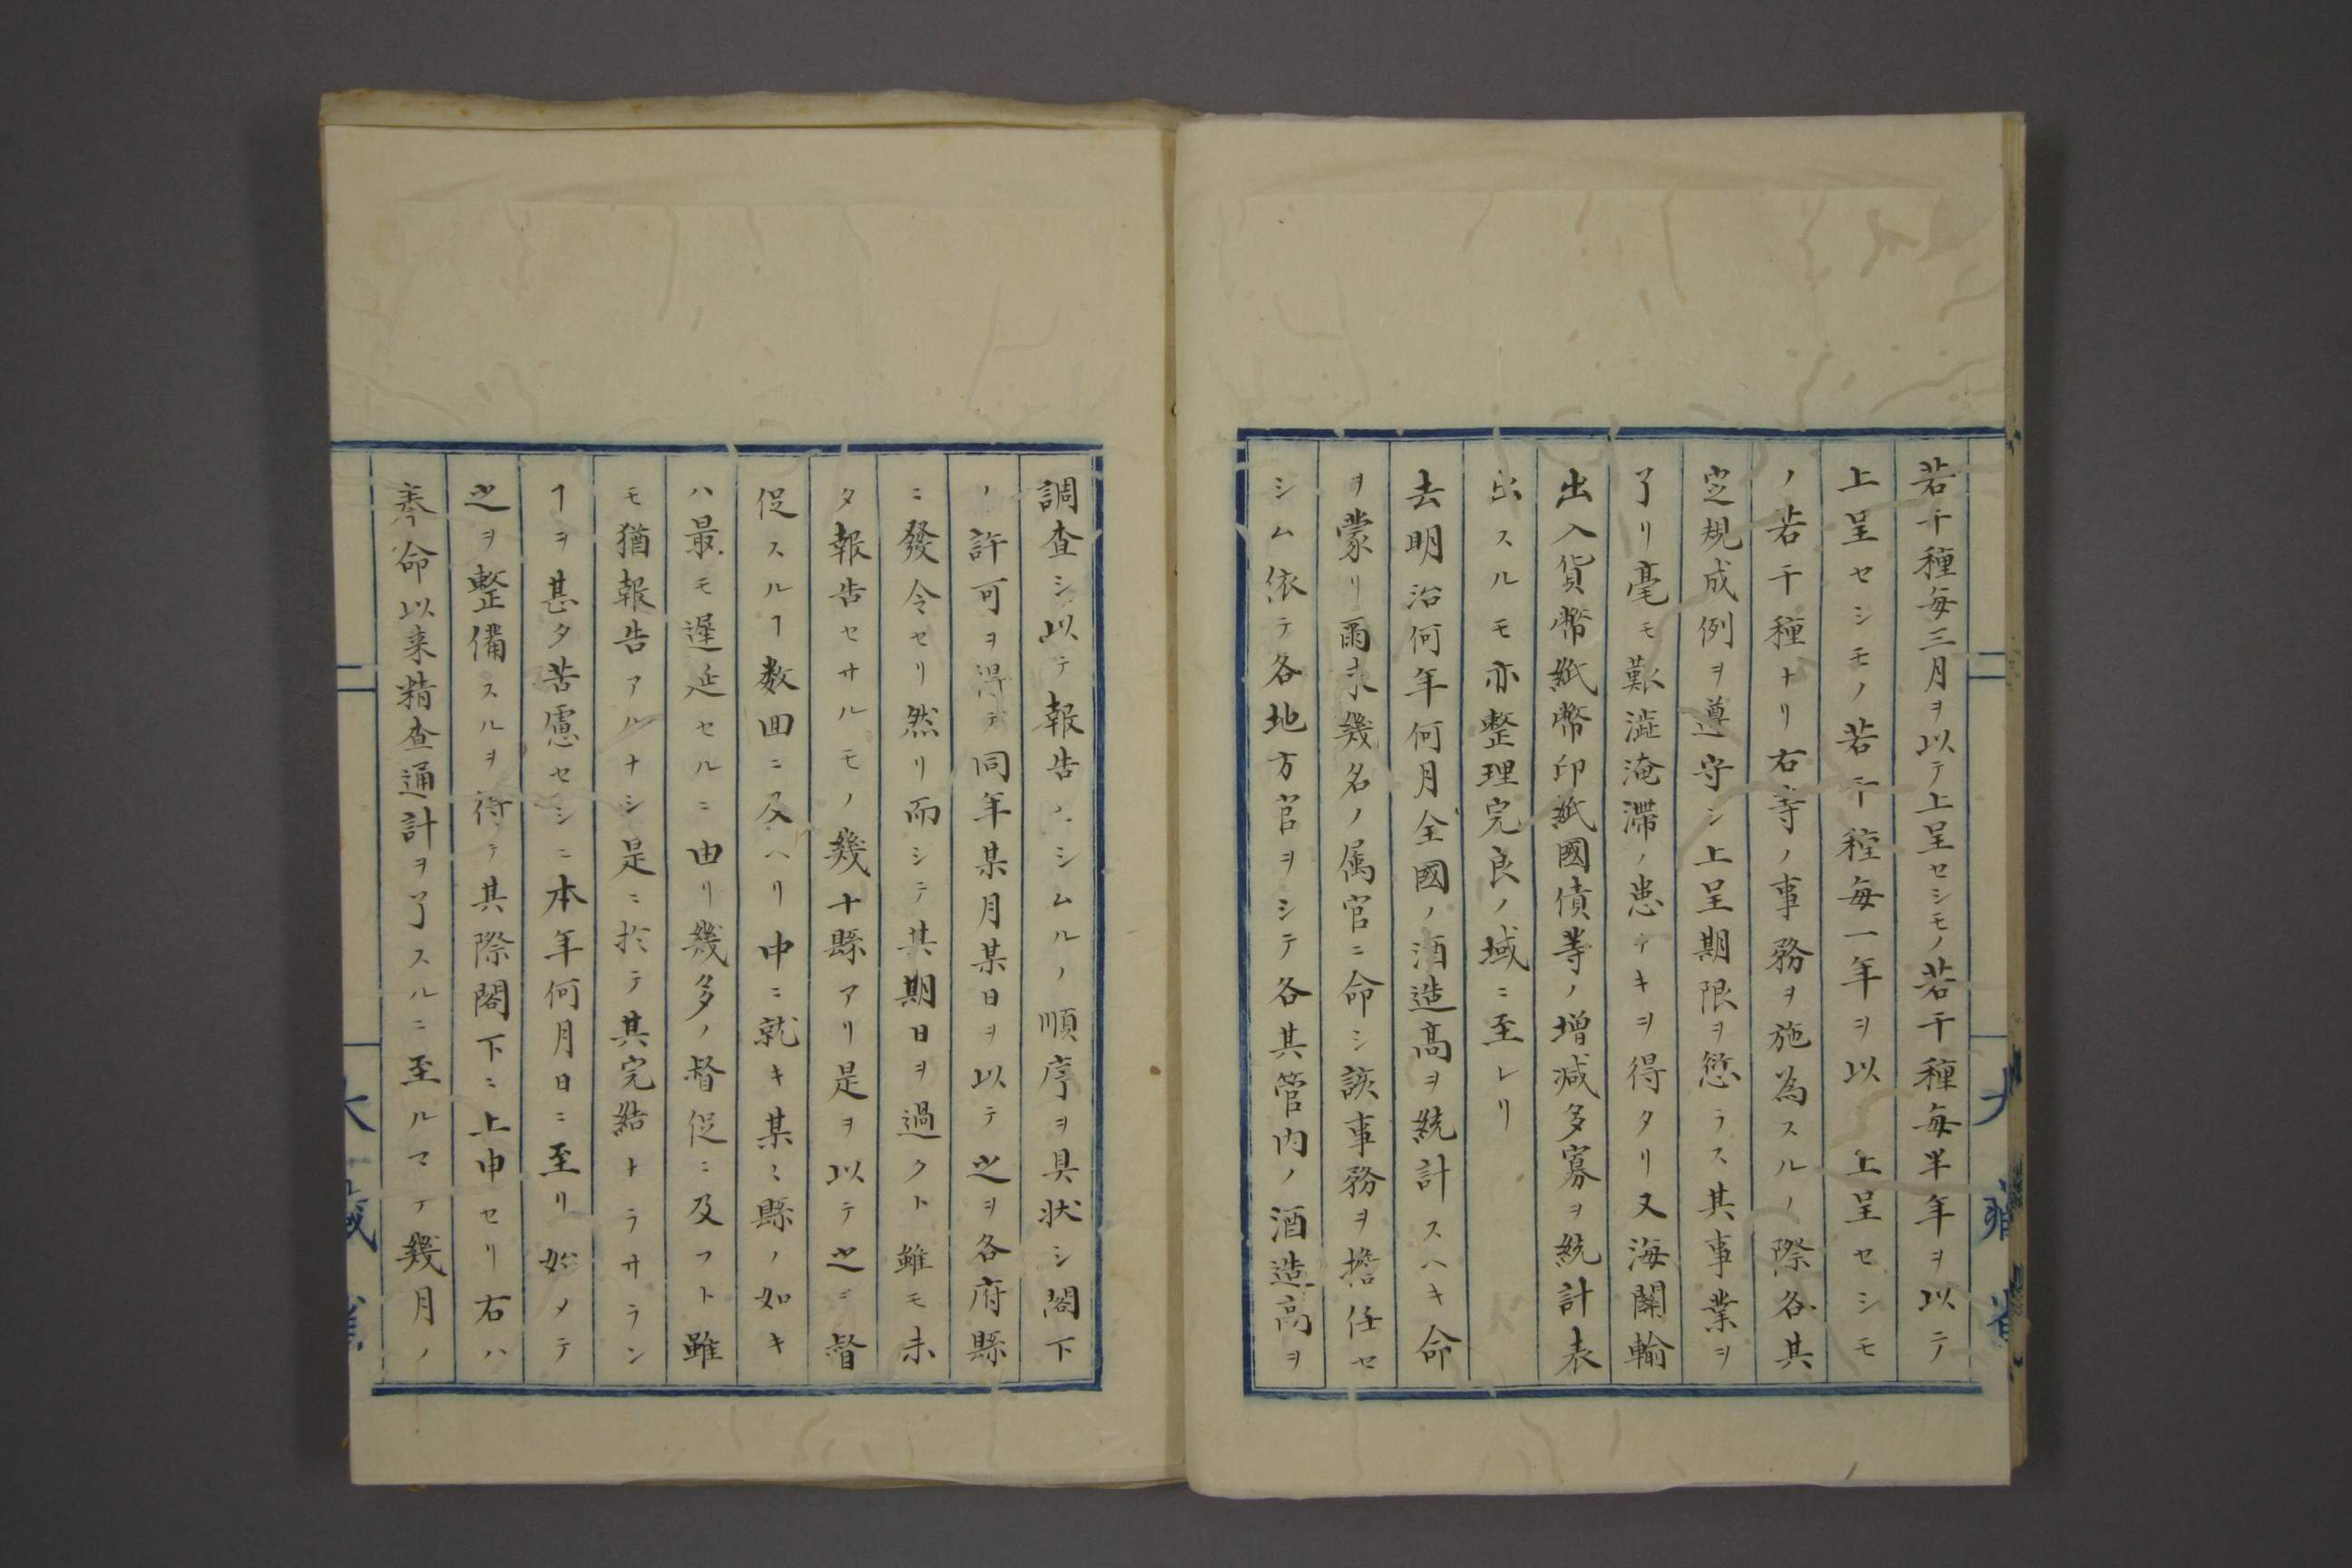 若干種毎三月ヲ以テ上呈セシモノ若干種毎半年ヲ以テ
上呈セシモノ若干種毎一年ヲ以上呈セシモ
ノ若干種トリ右等ノ事務ヲ施為スルノ際各其
定規成例ヲ遵守シ上呈期限ヲ愆ラス其事業ヲ
了リ毫モ艱澁淹滞ノ患ナキヲ得タリ又海関輸
出入貨幣紙幣印紙國債等ノ増減多寡ヲ統計表
出スルモ亦整理完良ノ域ニ至レリ
去明治何年何月全國ノ酒造高ヲ統計スヘキ命
ヲ蒙リ爾来幾名ノ属官ニ命シ該事務ヲ擔任セ
シム依テ各地方官ヲシテ各其管内ノ酒造高ヲ
調査シ以テ報告ハシムルノ順序ヲ具状シ閣下
ノ許可ヲ得テ同年某月某日ヲ以テ之ヲ各府縣
ニ發令セリ然リ而シテ其期日ヲ過クト雖モ未
タ報告セサルモノ幾十縣アリ是ヲ以テ之ヲ督
促スルヿ数回ニ及ヘリ中ニ就キ某々縣ノ如キ
ハ最モ遅延セルニ由リ幾多ノ督促ニ及フト雖
モ猶報告アルナシ是ニ於テ其完結トラサラン
ヿヲ甚タ苦慮セシニ本年何月日ニ至リ始メテ
之ヲ整備スルヲ得テ其際閣下ニ上申セリ右ハ
奉命以来精査通計ヲ了スルニ至ルマテ幾月ノ